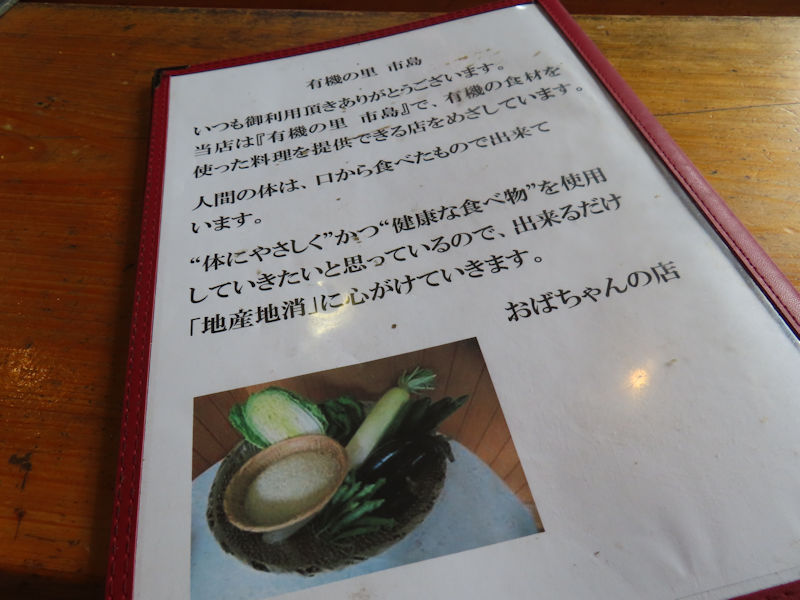 有機の里 市島
いつも御利用頂きありがとうございます。
当店は『有機の里 市島』で、有機の食材を
使った料理を提供できる店をめざしています。
人間の体は、口から食べたもので出来て
います。
“体にやさしく”かつ“健康な食べ物”を使用
していきたいと思っているので、出来るだけ
「地産地消」に心がけていきます。
おばちゃんの店